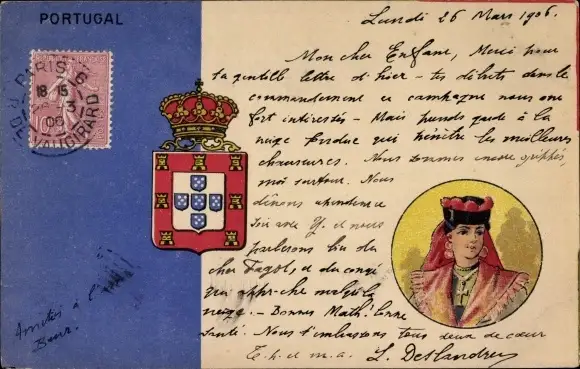 PORTUGAL
PARIS
18 15
3
06
R. DE VAUGIRARD
10
Lundi 26 Mars 1906.
Mon cher Enfant, Merci pour
ta gentille lettre d'hier - tes débuts dans le
commandement en campagne nous ont
fort intéressés - Mais prends garde à la
neige fondue qui pénètre les meilleures
chaussures. Nous sommes encore grippés,
moi surtout. Nous
dînons
soir avec et nous
parlerons de
cher et du congé
qui approche malgré la
neige - Bonne
santé. Nous t'embrassons tous deux de cœur
L. Deslandres
Amitiés à